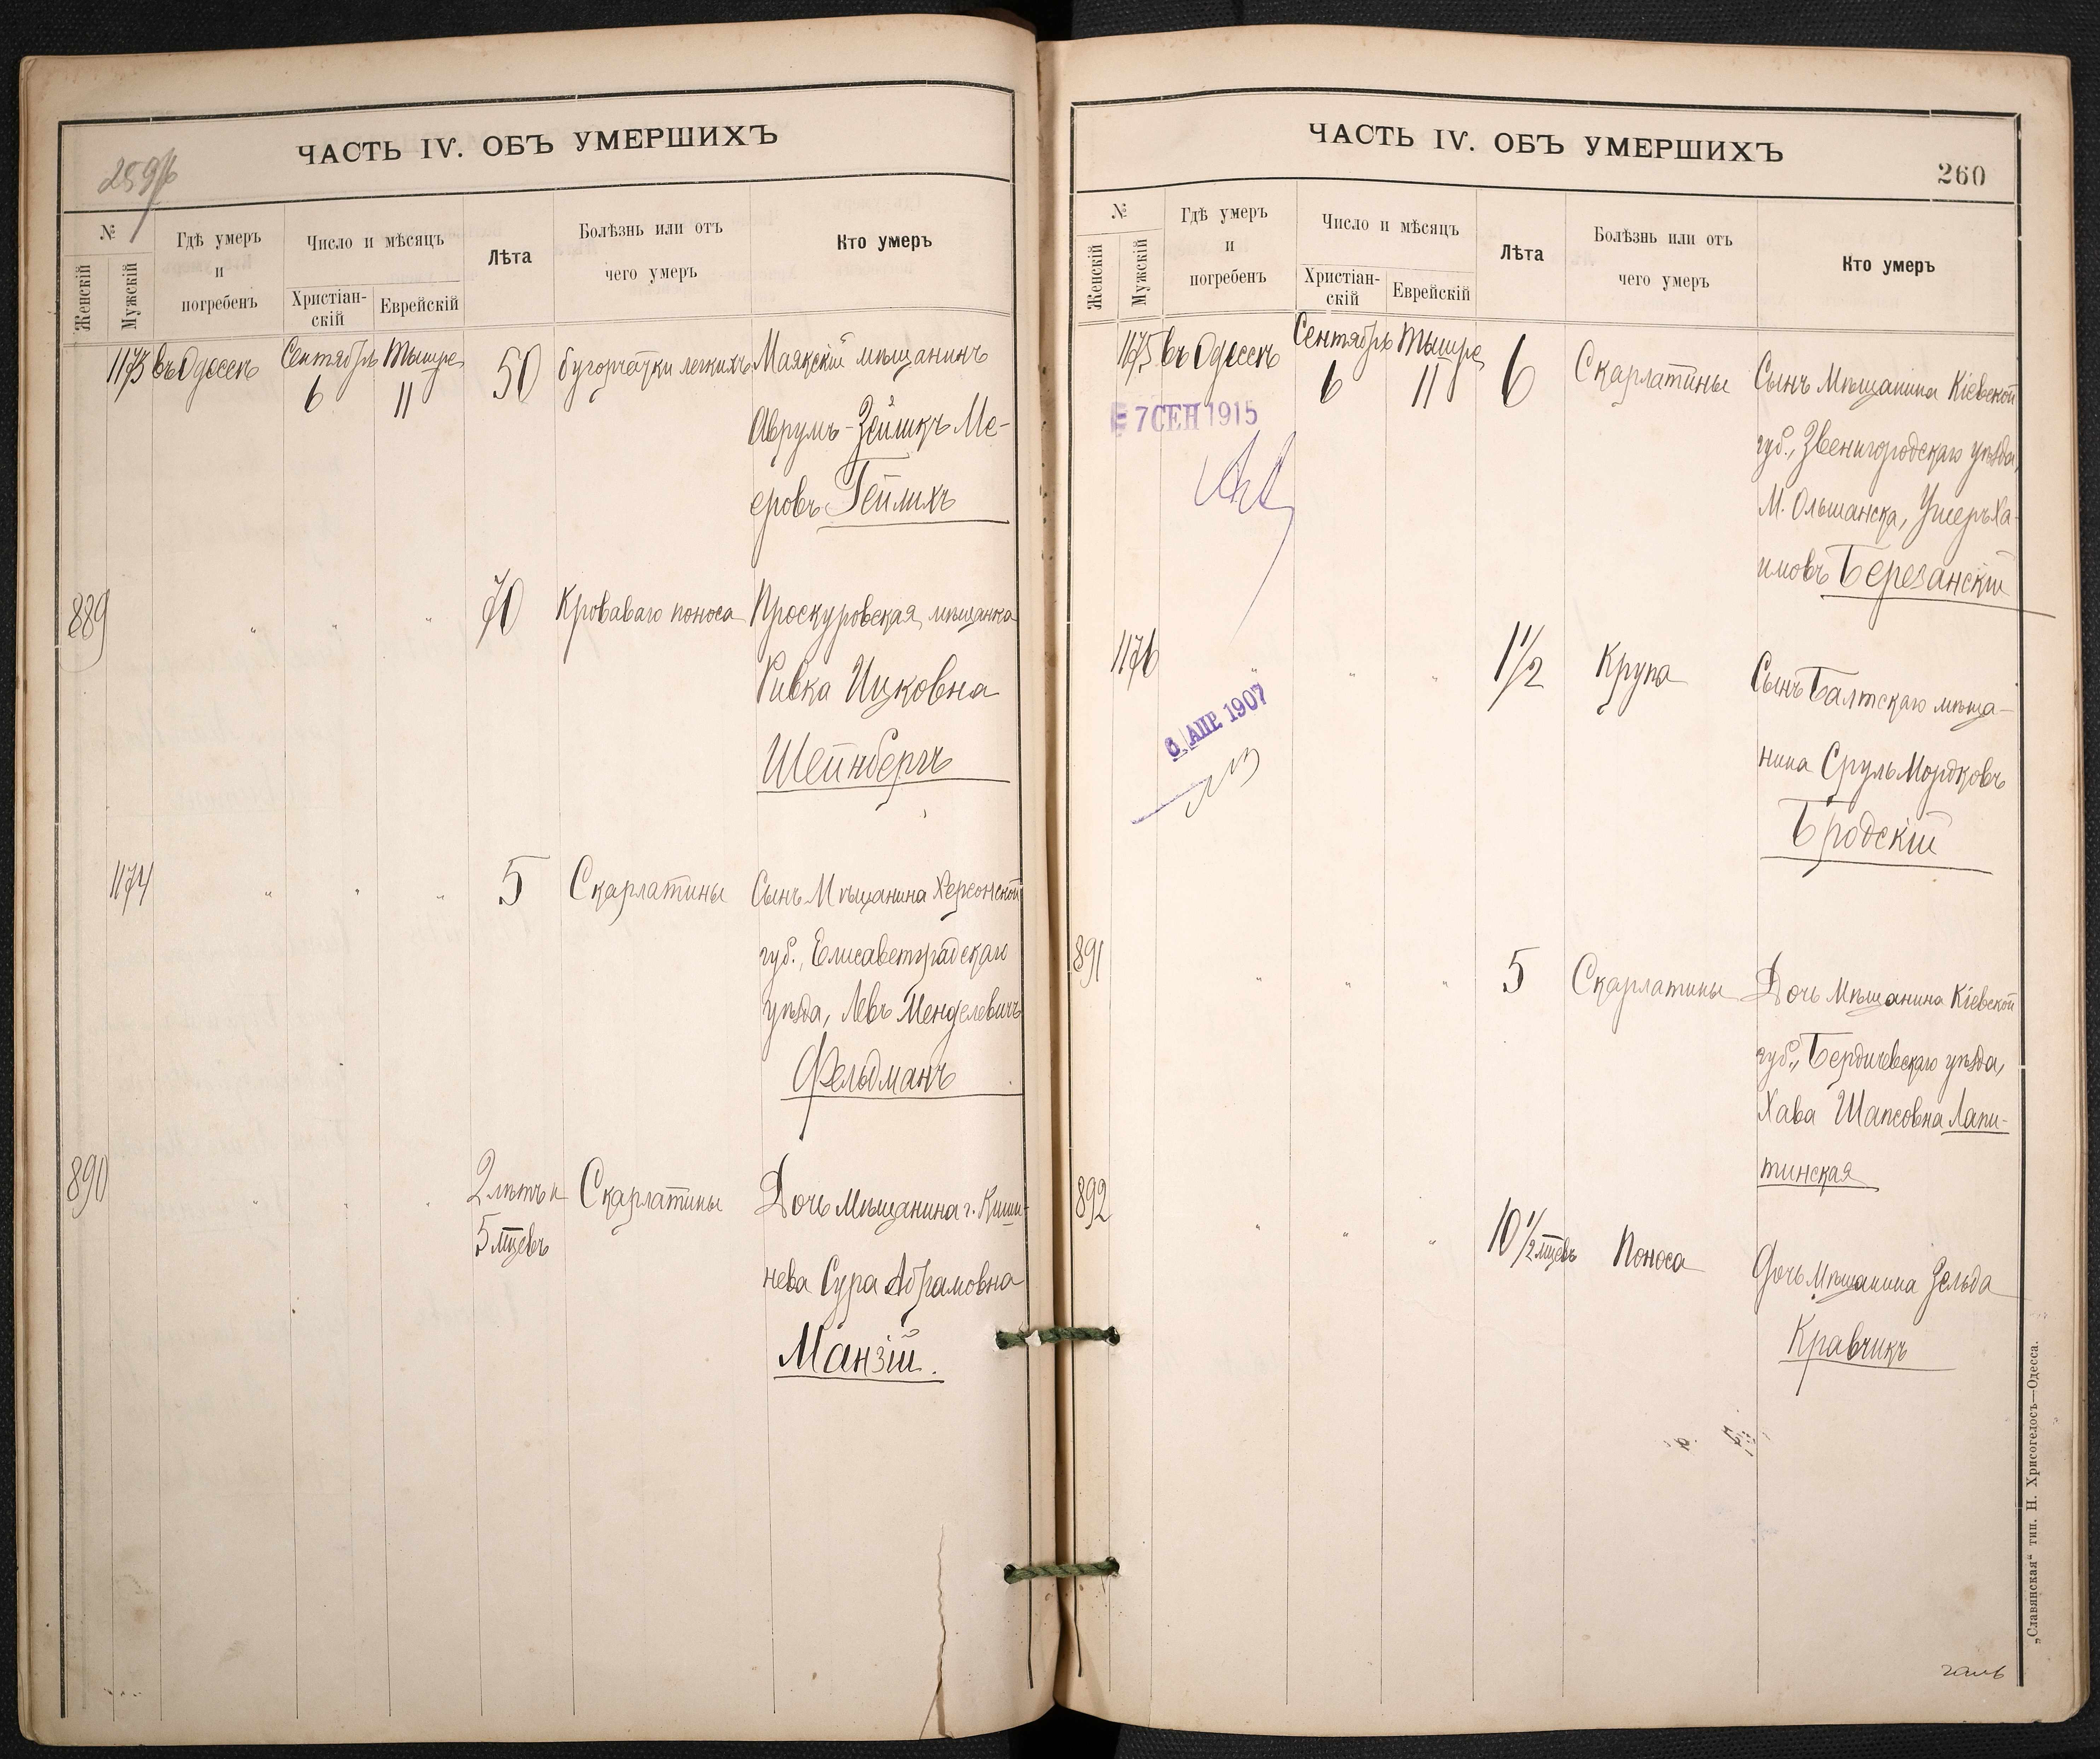 ЧАСТЬ IV. ОБЪ УМЕРШИХЪ
259
№
Женскій
Мужскій
Гдѣ умеръ
и
погребенъ
Число и мѣсяцъ
Христіан-
скій
Еврейскій
Лѣта
Болѣзнь или отъ
чего умеръ
Кто умеръ
1173 въ Одессѣ Сентябрь Тышре 50 бугорчатки легкихъ Маякскій мѣщанинъ
6 11
Аврумъ-Зейликъ Ме-
еровъ Гейлихъ
889 " " " 70 Кроваваго поноса Проскуровская мѣщанка
Ривка Ицковна
Шейнбергъ
1174 " " " 5 Скарлатины Сынъ Мѣщанина Херсонской
губ., Елисаветградскаго
уѣзда, Левъ Менделевичъ
Фельдманъ
890 " " " 2 лѣтъ и Скарлатины Дочь Мѣщанина г. Киши-
5 мцевъ
нева Сура Абрамовна
Манзій.
ЧАСТЬ IV. ОБЪ УМЕРШИХЪ
260
№
Женскій
Мужскій
Гдѣ умеръ
и
погребенъ
Число и мѣсяцъ
Христіан-
скій
Еврейскій
Лѣта
Болѣзнь или отъ
чего умеръ
Кто умеръ
1175 въ Одессѣ Сентябрь Тышре 6 Скарлатины Сынъ Мѣщанина Кіевской
6 11
7 СЕН 1915
губ., Звенигородскаго уѣзда,
М. Ольшанска, Ушеръ Ха-
имовъ Березанскій
1176 " " " 1 1/2 Крупа Сынъ Балтскаго мѣща-
6 АПР. 1907
нина Сруль Мордковъ
Бродскій
891 " " " 5 Скарлатины Дочь Мѣщанина Кіевской
губ., Бердичевскаго уѣзда,
Хава Шапсовна Лапи-
тинская
892 " " " 10 1/2 мцевъ Поноса Дочь Мѣщанина Зельда
Кравчикъ
„Славянская“ тип. Н. Хрисогелосъ—Одесса.